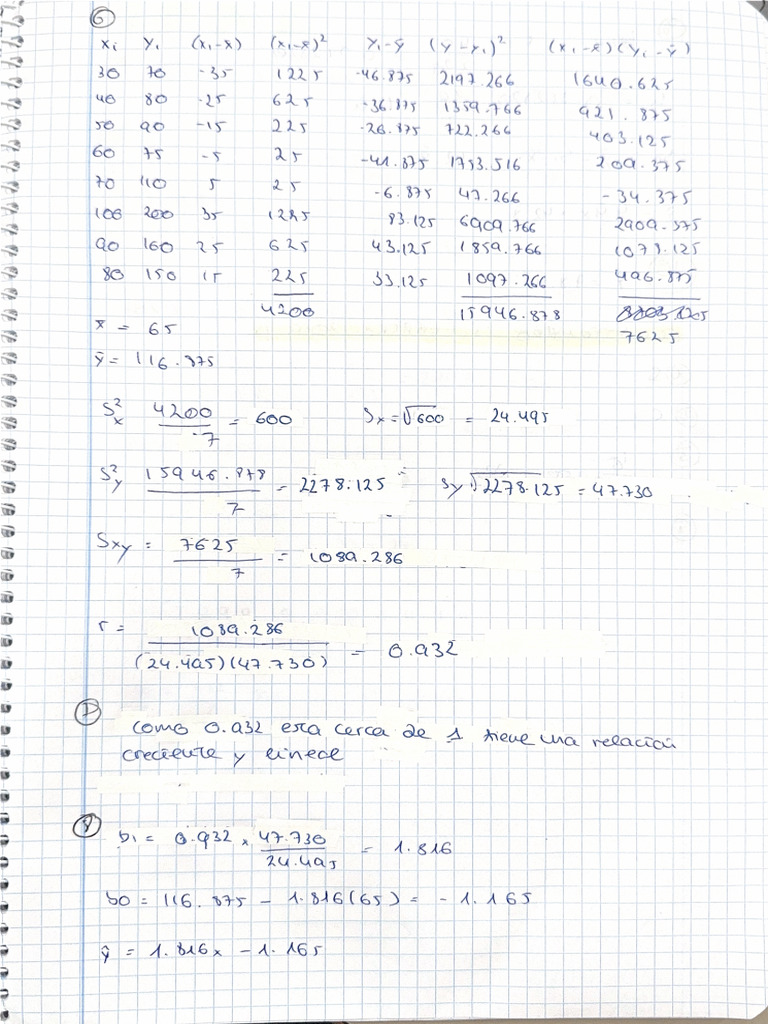 6
xi yi (xi-x̄) (xi-x̄)² yi-ȳ (y-yi)² (xi-x̄)(yi-ȳ)
30 70 -35 1225 -46.875 2197.266 1640.625
40 80 -25 625 -36.875 1359.766 921.875
50 90 -15 225 -26.875 722.266 403.125
60 75 -5 25 -41.875 1753.516 209.375
70 110 5 25 -6.875 47.266 -34.375
100 200 35 1225 83.125 6909.766 2909.375
90 160 25 625 43.125 1859.766 1073.125
80 150 15 225 33.125 1097.266 496.875
4200 15946.878
7625
x̄ = 65
ȳ = 116.875
S²x 4200/7 = 600 Sx = √600 = 24.495
S²y 15946.878/7 = 2278.125 Sy √2278.125 = 47.730
Sxy = 7625/7 = 1089.286
r = 1089.286/(24.495)(47.730) = 0.932
7
como 0.932 esta cerca de 1 tiene una relación
creciente y lineal
8
b1 = 0.932 × 47.730/24.495 = 1.816
b0 = 116.875 - 1.816(65) = -1.165
ŷ = 1.816x - 1.165